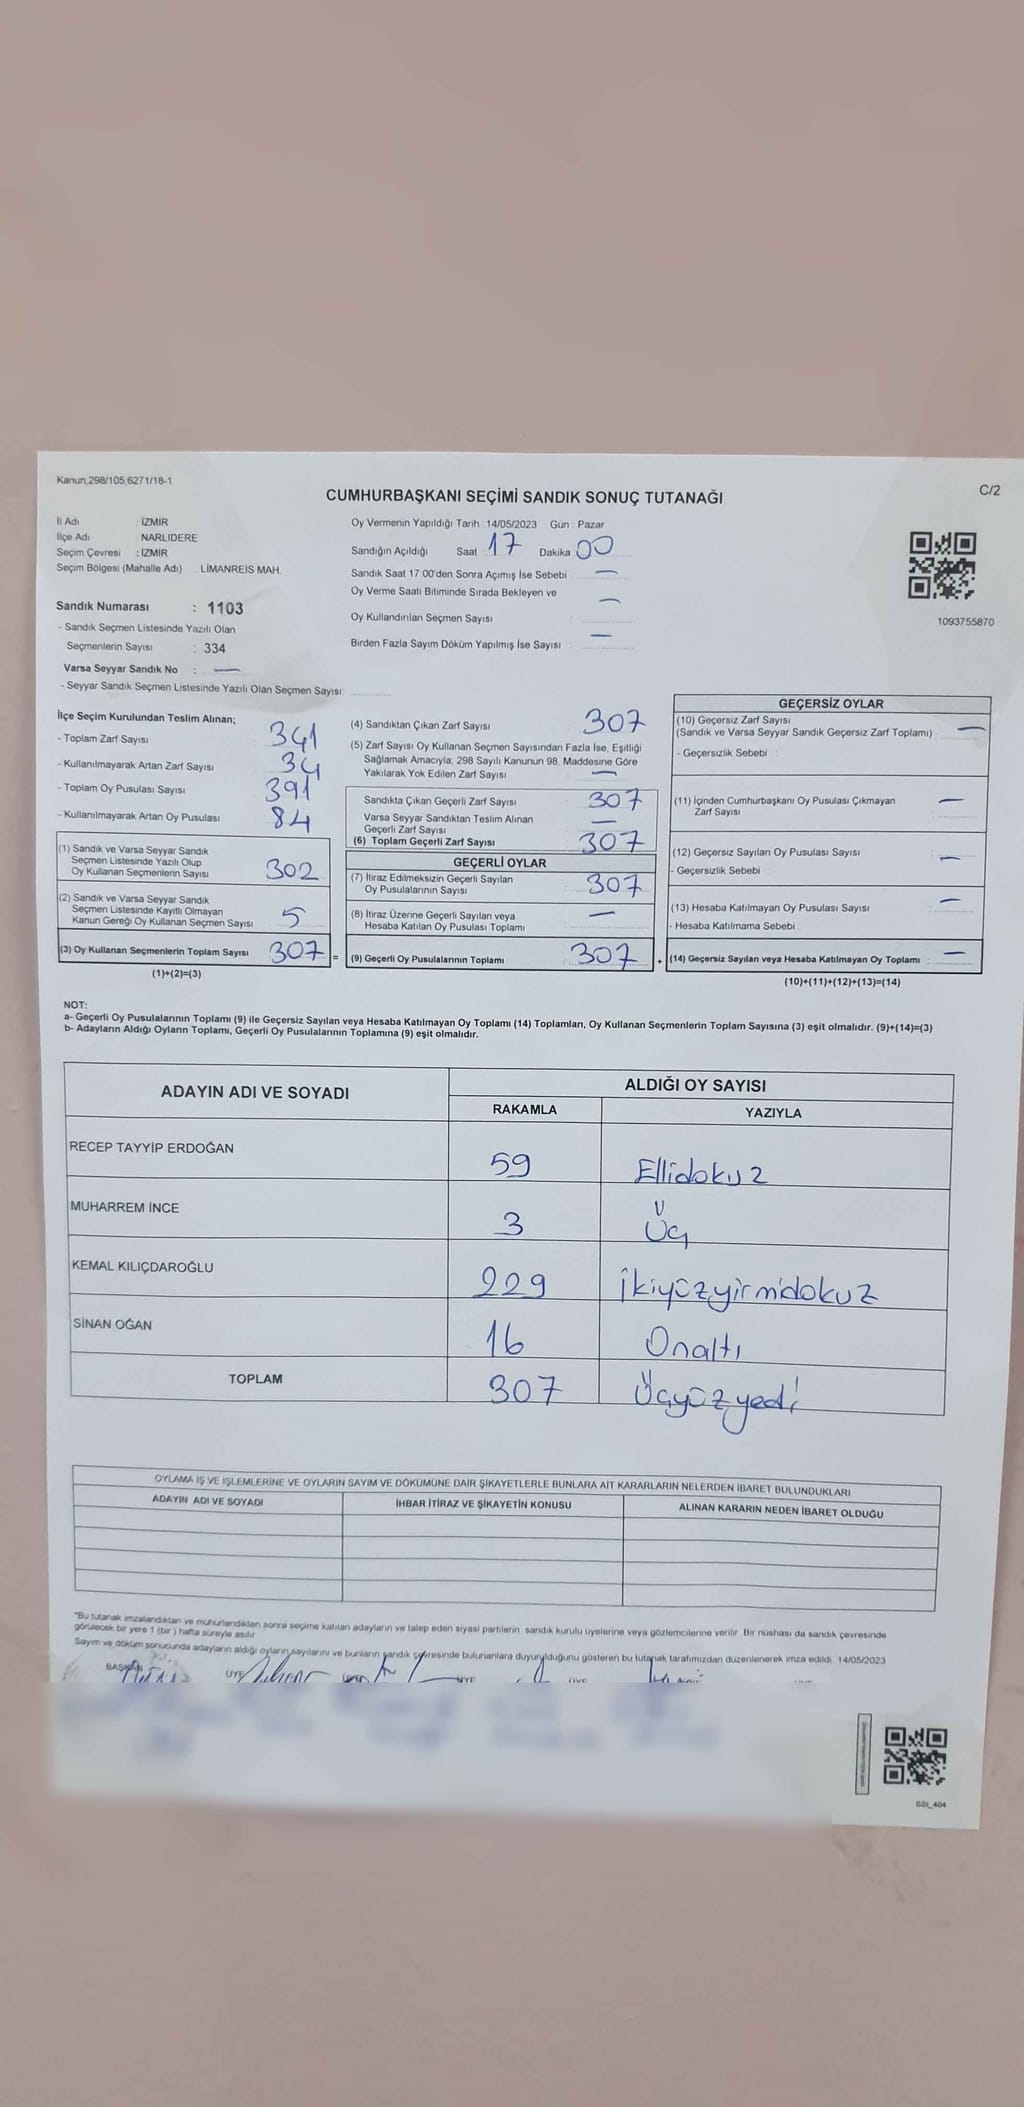 Kanun;298/105,6271/18-1
C/2
CUMHURBAŞKANI SEÇİMİ SANDIK SONUÇ TUTANAĞI
İl Adı : İZMİR
İlçe Adı NARLIDERE
Seçim Çevresi : İZMİR
Seçim Bölgesi (Mahalle Adı) LİMANREİS MAH.
Sandık Numarası : 1103
- Sandık Seçmen Listesinde Yazılı Olan
Seçmenlerin Sayısı : 334
Varsa Seyyar Sandık No : —
- Seyyar Sandık Seçmen Listesinde Yazılı Olan Seçmen Sayısı:
Oy Vermenin Yapıldığı Tarih : 14/05/2023 Gün : Pazar
Sandığın Açıldığı Saat 17 Dakika 00
Sandık Saat 17 00'den Sonra Açımış İse Sebebi : —
Oy Verme Saati Bitiminde Sırada Bekleyen ve
Oy Kullandırılan Seçmen Sayısı : —
Birden Fazla Sayım Döküm Yapılmış İse Sayısı : —
1093755870
İlçe Seçim Kurulundan Teslim Alınan;
- Toplam Zarf Sayısı 341
- Kullanılmayarak Artan Zarf Sayısı 34
- Toplam Oy Pusulası Sayısı 391
- Kullanılmayarak Artan Oy Pusulası 84
(1) Sandık ve Varsa Seyyar Sandık
Seçmen Listesinde Yazılı Olup
Oy Kullanan Seçmenlerin Sayısı 302
(2) Sandık ve Varsa Seyyar Sandık
Seçmen Listesinde Kayıtlı Olmayan
Kanun Gereği Oy Kullanan Seçmen Sayısı 5
(3) Oy Kullanan Seçmenlerin Toplam Sayısı 307 =
(1)+(2)=(3)
(4) Sandıktan Çıkan Zarf Sayısı 307
(5) Zarf Sayısı Oy Kullanan Seçmen Sayısından Fazla İse, Eşitliği
Sağlamak Amacıyla, 298 Sayılı Kanunun 98. Maddesine Göre
Yakılarak Yok Edilen Zarf Sayısı —
Sandıkta Çıkan Geçerli Zarf Sayısı : 307
Varsa Seyyar Sandıktan Teslim Alınan
Geçerli Zarf Sayısı —
(6) Toplam Geçerli Zarf Sayısı 307
GEÇERLİ OYLAR
(7) İtiraz Edilmeksizin Geçerli Sayılan
Oy Pusulalarının Sayısı : 307
(8) İtiraz Üzerine Geçerli Sayılan veya
Hesaba Katılan Oy Pusulası Toplamı : —
(9) Geçerli Oy Pusulalarının Toplamı : 307 +
GEÇERSİZ OYLAR
(10) Geçersiz Zarf Sayısı
(Sandık ve Varsa Seyyar Sandık Geçersiz Zarf Toplamı) : —
- Geçersizlik Sebebi :
(11) İçinden Cumhurbaşkanı Oy Pusulası Çıkmayan
Zarf Sayısı —
(12) Geçersiz Sayılan Oy Pusulası Sayısı : —
- Geçersizlik Sebebi :
(13) Hesaba Katılmayan Oy Pusulası Sayısı : —
- Hesaba Katılmama Sebebi :
(14) Geçersiz Sayılan veya Hesaba Katılmayan Oy Toplamı : —
(10)+(11)+(12)+(13)=(14)
NOT:
a- Geçerli Oy Pusulalarının Toplamı (9) ile Geçersiz Sayılan veya Hesaba Katılmayan Oy Toplamı (14) Toplamları, Oy Kullanan Seçmenlerin Toplam Sayısına (3) eşit olmalıdır. (9)+(14)=(3)
b- Adayların Aldığı Oyların Toplamı, Geçerli Oy Pusulalarının Toplamına (9) eşit olmalıdır.
ADAYIN ADI VE SOYADI ALDIĞI OY SAYISI
RAKAMLA YAZIYLA
RECEP TAYYİP ERDOĞAN 59 Ellidokuz
MUHARREM İNCE 3 Üç
KEMAL KILIÇDAROĞLU 229 İkiyüzyirmidokuz
SİNAN OĞAN 16 Onaltı
TOPLAM 307 Üçyüzyedi
OYLAMA İŞ VE İŞLEMLERİNE VE OYLARIN SAYIM VE DÖKÜMÜNE DAİR ŞİKAYETLERLE BUNLARA AİT KARARLARIN NELERDEN İBARET BULUNDUKLARI
ADAYIN ADI VE SOYADI İHBAR İTİRAZ VE ŞİKAYETİN KONUSU ALINAN KARARIN NEDEN İBARET OLDUĞU
"Bu tutanak imzalandıktan ve mühürlendikten sonra seçime katılan adayların ve talep eden siyasi partilerin sandık kurulu üyelerine veya gözlemcilerine verilir. Bir nüshası da sandık çevresinde
görülecek bir yere 1 (bir ) hafta süreyle asılır
Sayım ve döküm sonucunda adayların aldığı oyların sayılarını ve bunların sandık çevresinde bulunanlara duyurulduğunu gösteren bu tutanak tarafımızdan düzenlenerek imza edildi. 14/05/2023
BAŞKAN ÜYE ÜYE ÜYE